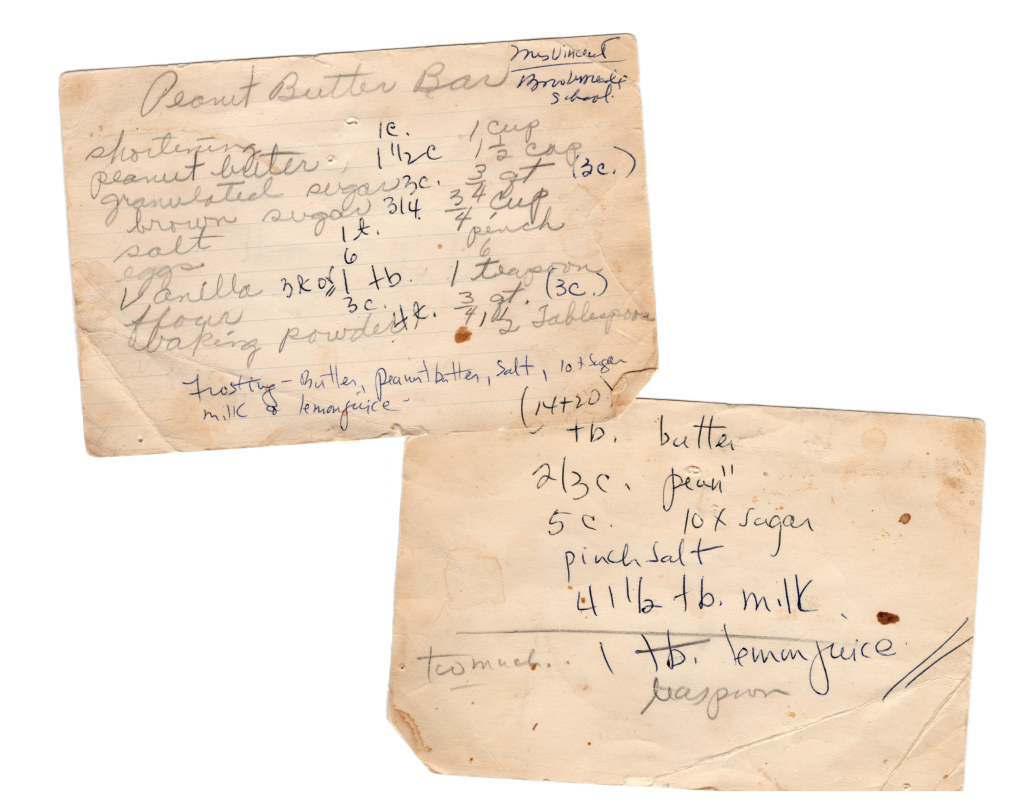 Mrs Vincent
Peanut Butter Bar
School.
shortening 1c. 1 cup
peanut butter, 1 1/2c 1 1/2 cup
granulated sugar 3c. 3/4 qt (3c.)
brown sugar 3/4 3/4 cup
salt 1t. pinch
eggs 6 6
Vanilla 1 tb. 1 teaspoon
flour 3c. 3/4 qt. (3c.)
baking powder 1 1/2 Tablespoon
Frosting - Butter, peanutbutter, salt, 10x sugar
milk & lemonjuice -
(14+20)
tb. butter
2/3 c. pean"
5 c. 10 x sugar
pinch salt
4 1/2 tb. milk
too much.. 1 tb. lemonjuice
teaspoon